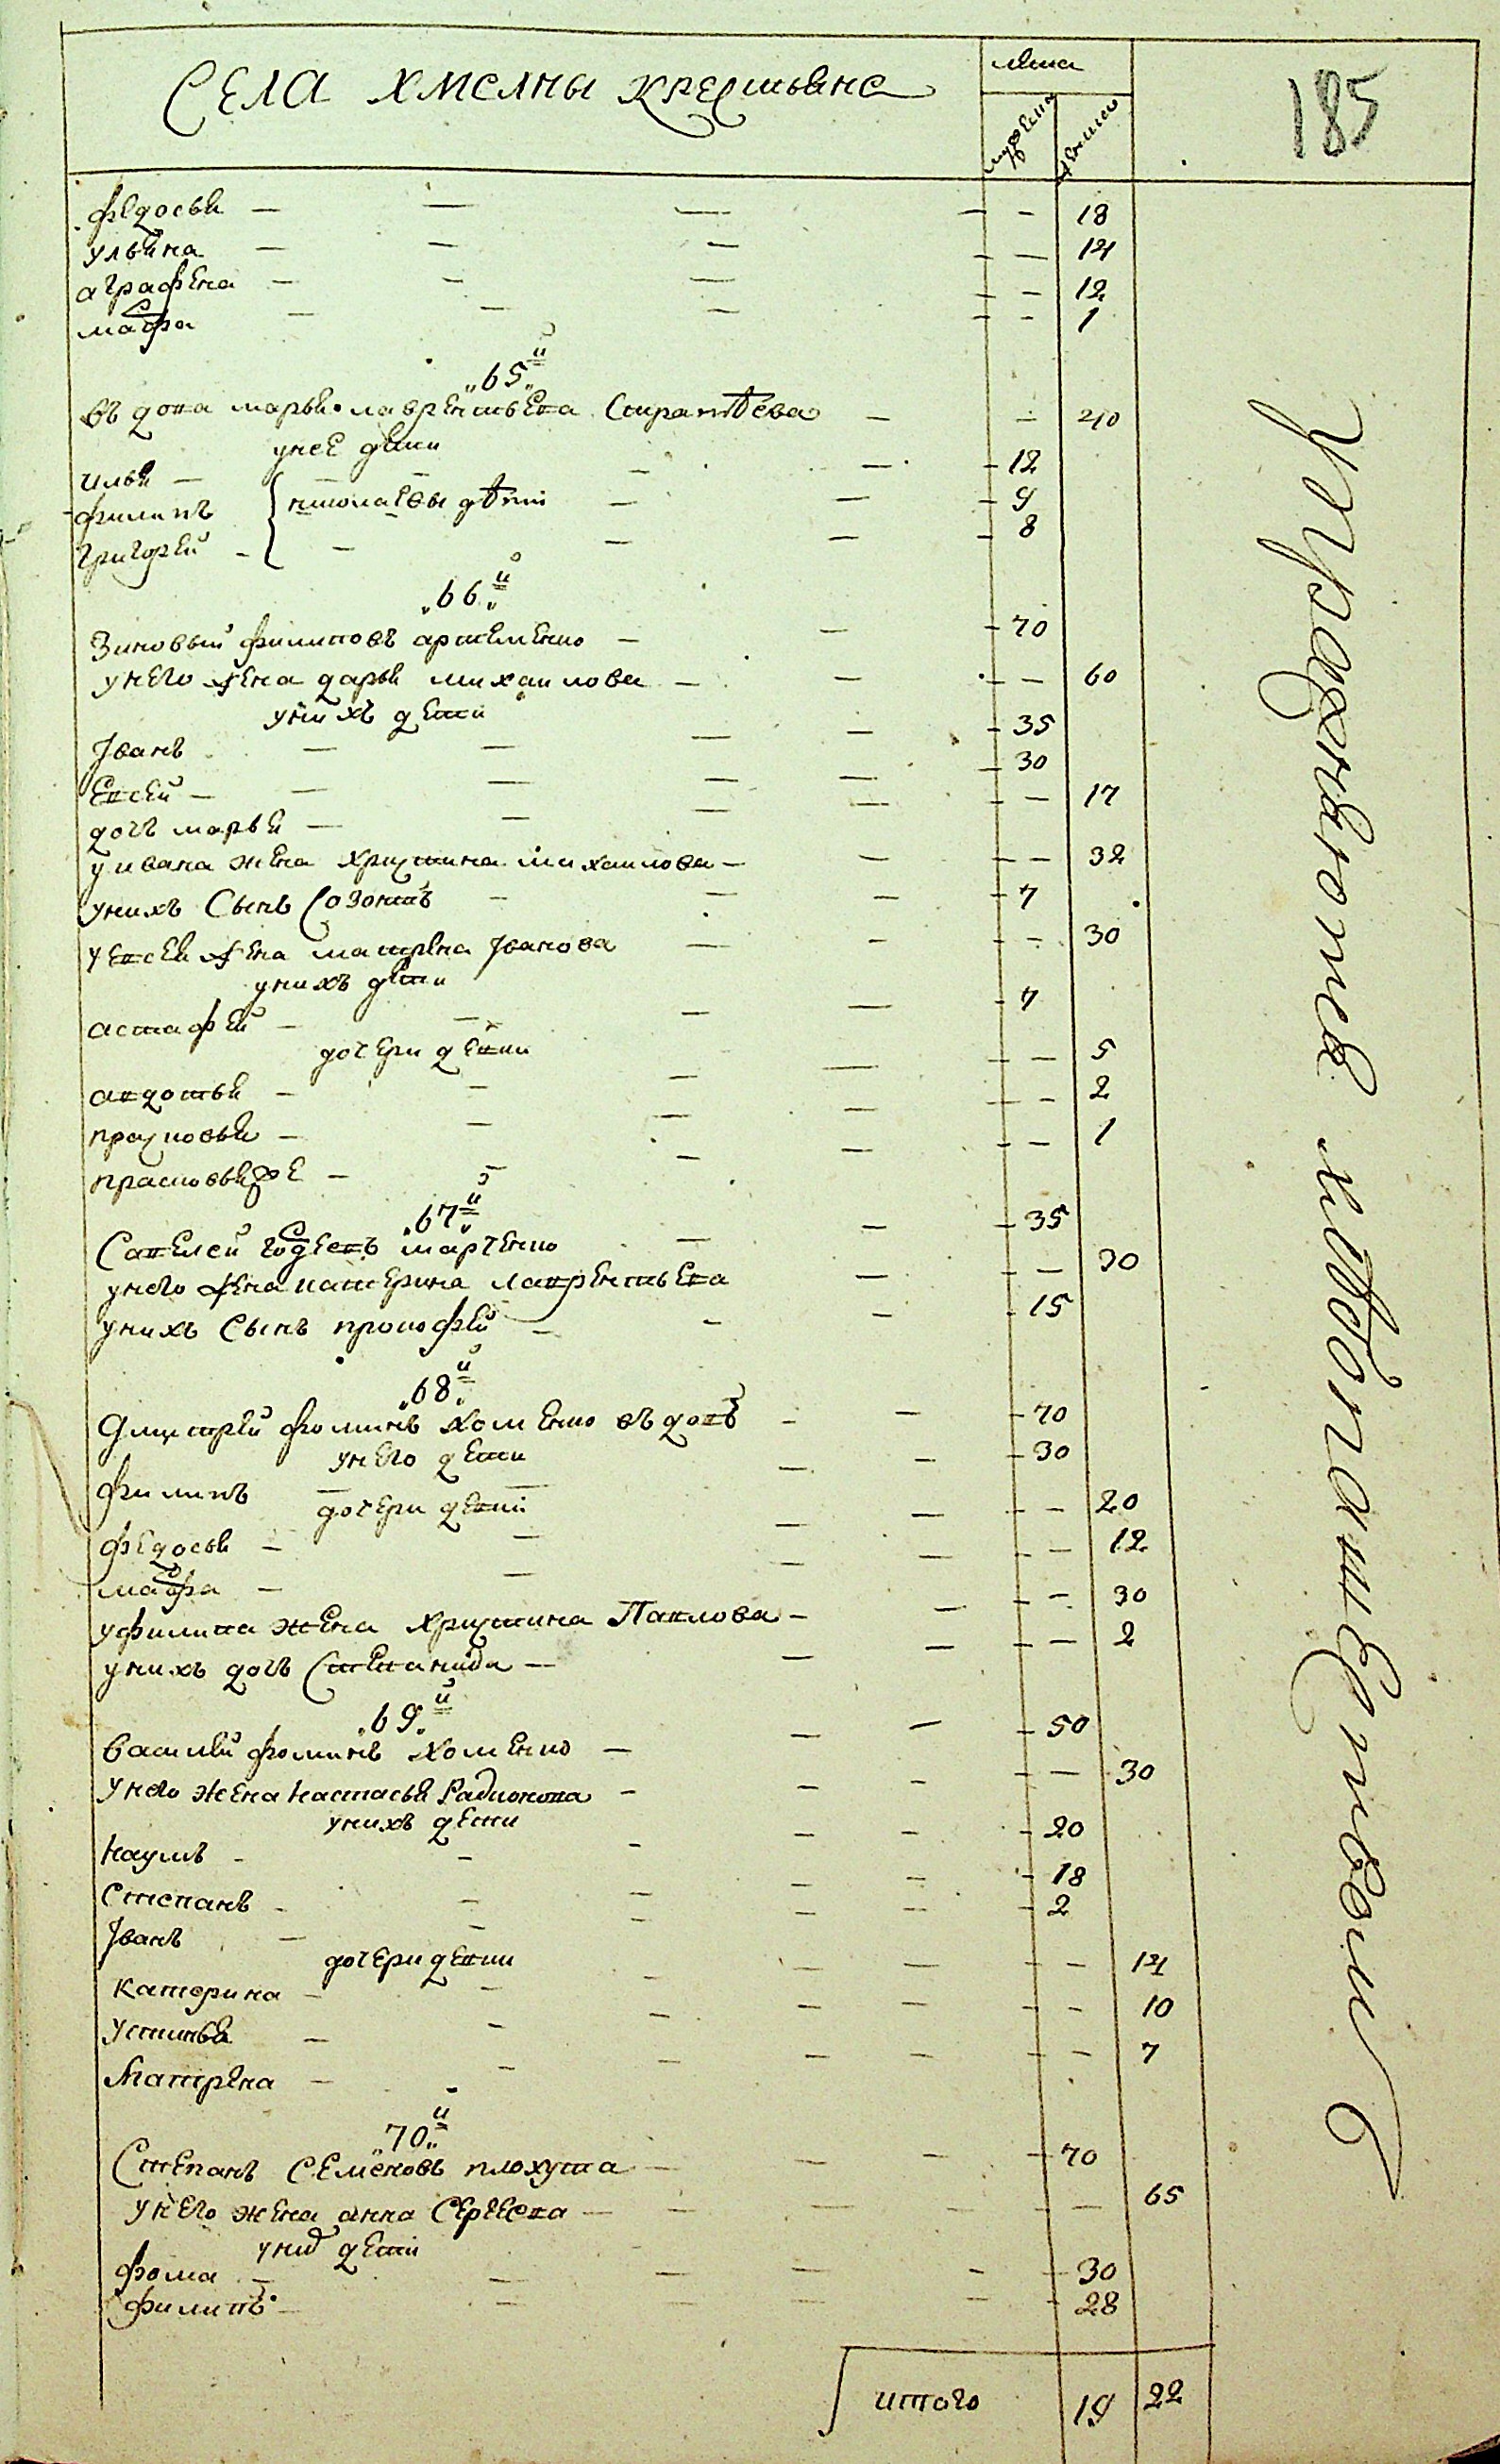 Села Хмелны крестьяне
лета
мужеска
женска
185
Федосья — 18
Ульяна — 14
Аграфена — 12
Марфа — 1
„65й„
Вдова Марья Лаврентьева — 40
у нее дети
Илья — 12
Филипъ — 9
Николаевы дѣти
Григорей — 8
„66й„
Зиновый Филиповъ Артеменко — 70
у него жена Дарья Михаилова — 60
у нихъ дети
Іванъ — 35
Евсей — 30
дочь Марья — 17
у Ивана жена Христина Михаилова — 32
у нихъ сынъ Созонтъ — 7
у Евсея жена Матрена Іванова — 30
у нихъ дети
Астафей — 7
дочери девки
Авдотья — 5
Прасковья — 2
Прасковья же — 1
„67й„
Савелей Марченко — 35
у него жена Катерина Лаврентьева — 30
у нихъ сынъ Прокофей — 15
„68й„
Дмитрей Фоминъ Хоменко вдовъ — 70
у него дети
Филипъ — 30
дочери девки
Федосья — 20
Марфа — 12
у Филипа жена Христина Павлова — 30
у нихъ дочь Степанида — 2
„69й„
Василей Фоминъ Хоменко — 50
у него жена Настасья Радионова — 30
у нихъ дети
Наумъ — 20
Степанъ — 18
Іванъ — 2
дочери девки
Катерина — 14
Устинья — 10
Матрена — 7
„70й„
Степанъ Семеновъ Плохута — 70
у него жена Анна Сергеева — 65
у них дети
Фома — 30
Филипъ — 28
итого 19 22
Упражняются хлебопашеством